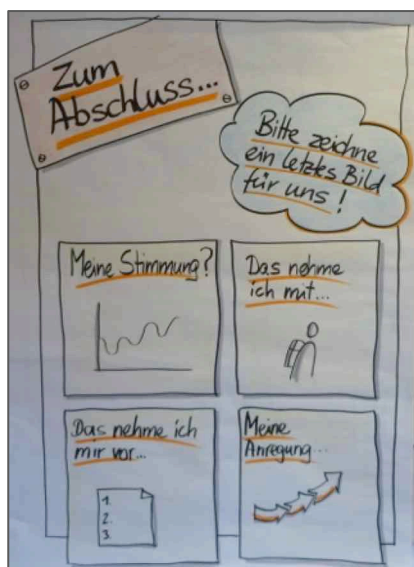 Zum
Abschluss...
Bitte zeichne
ein letztes Bild
für uns!
Meine Stimmung?
Das nehme
ich mit...
Das nehme ich
mir vor...
1.
2.
3.
Meine
Anregung...